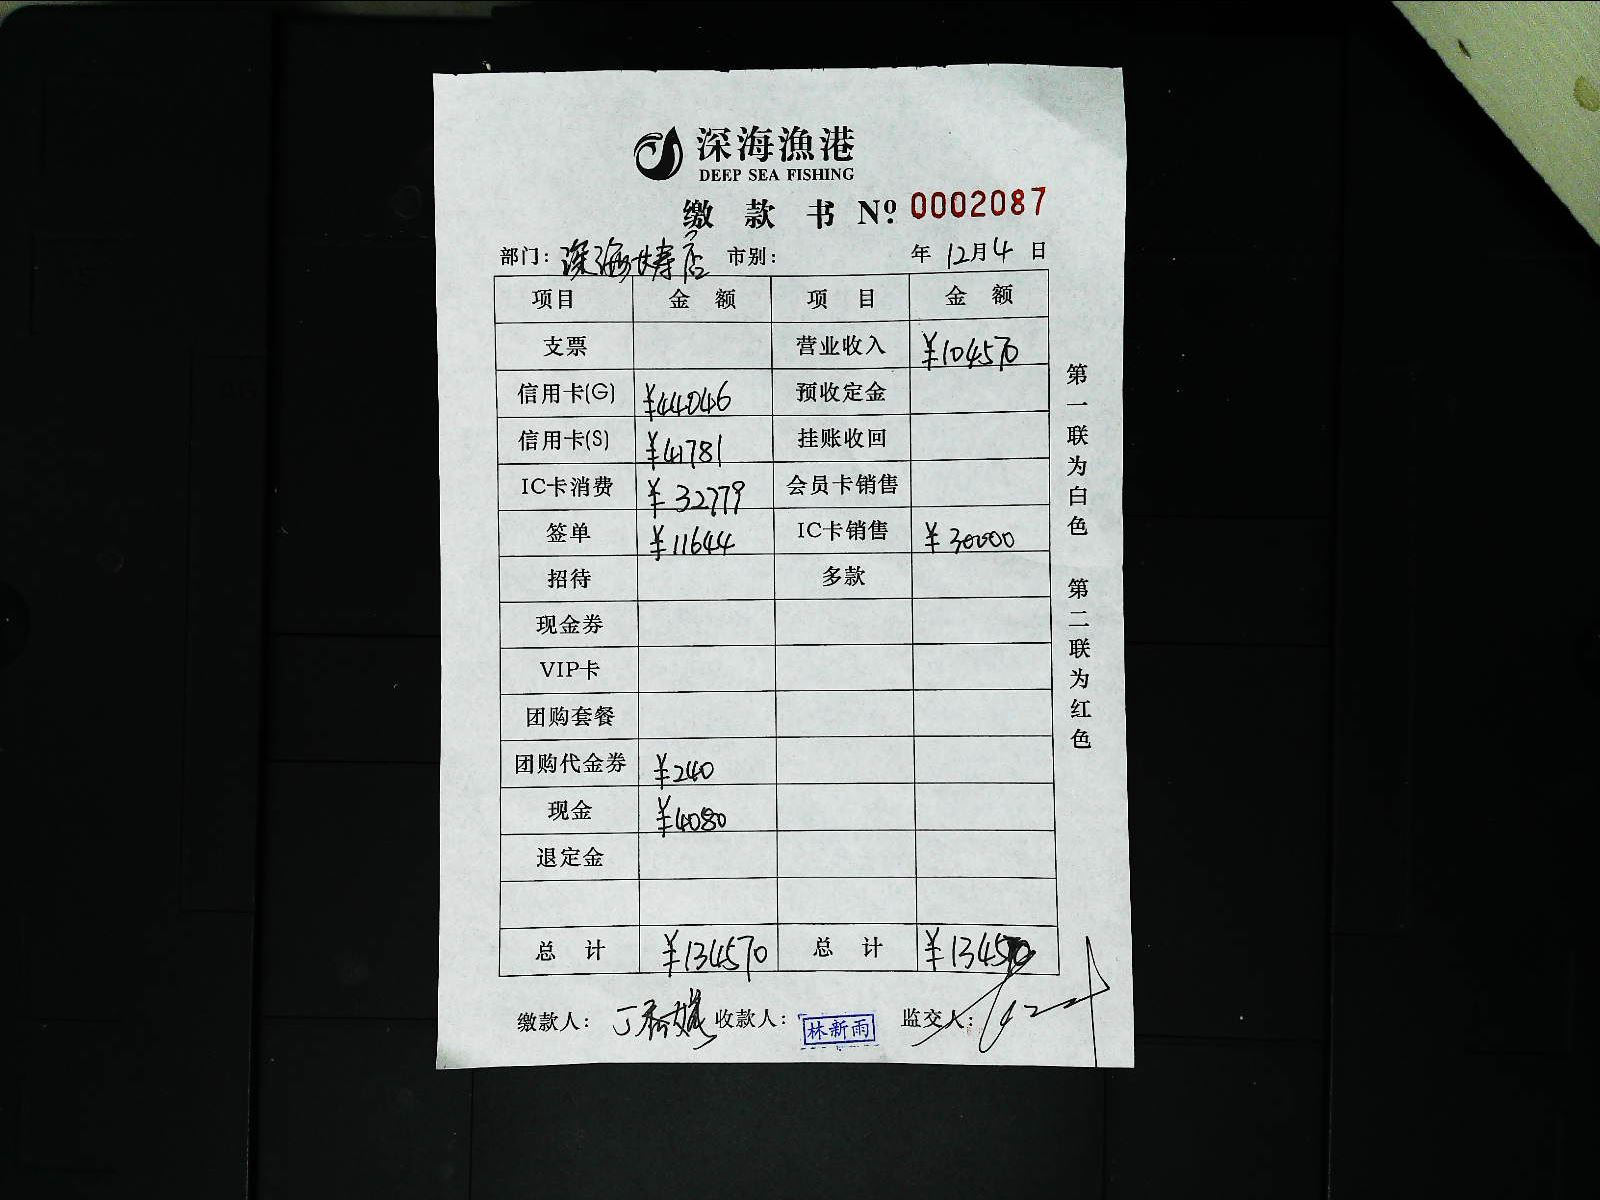 深海漁港
DEEP SEA FISHING
缴 款 书 Nº 0002087
部门: 深海 店 市别: 年 12月4 日
项目 金 额 项 目 金 额
支票 营业收入 ¥104570
信用卡(G) ¥44046 预收定金
信用卡(S) ¥41781 挂账收回
IC卡消费 ¥32779 会员卡销售
签单 ¥11644 IC卡销售 ¥30000
招待 多款
现金券
VIP卡
团购套餐
团购代金券 ¥240
现金 ¥4080
退定金
总 计 ¥134570 总 计 ¥134570
缴款人: 丁 收款人: 林新雨 监交人:
第一联为白色 第二联为红色